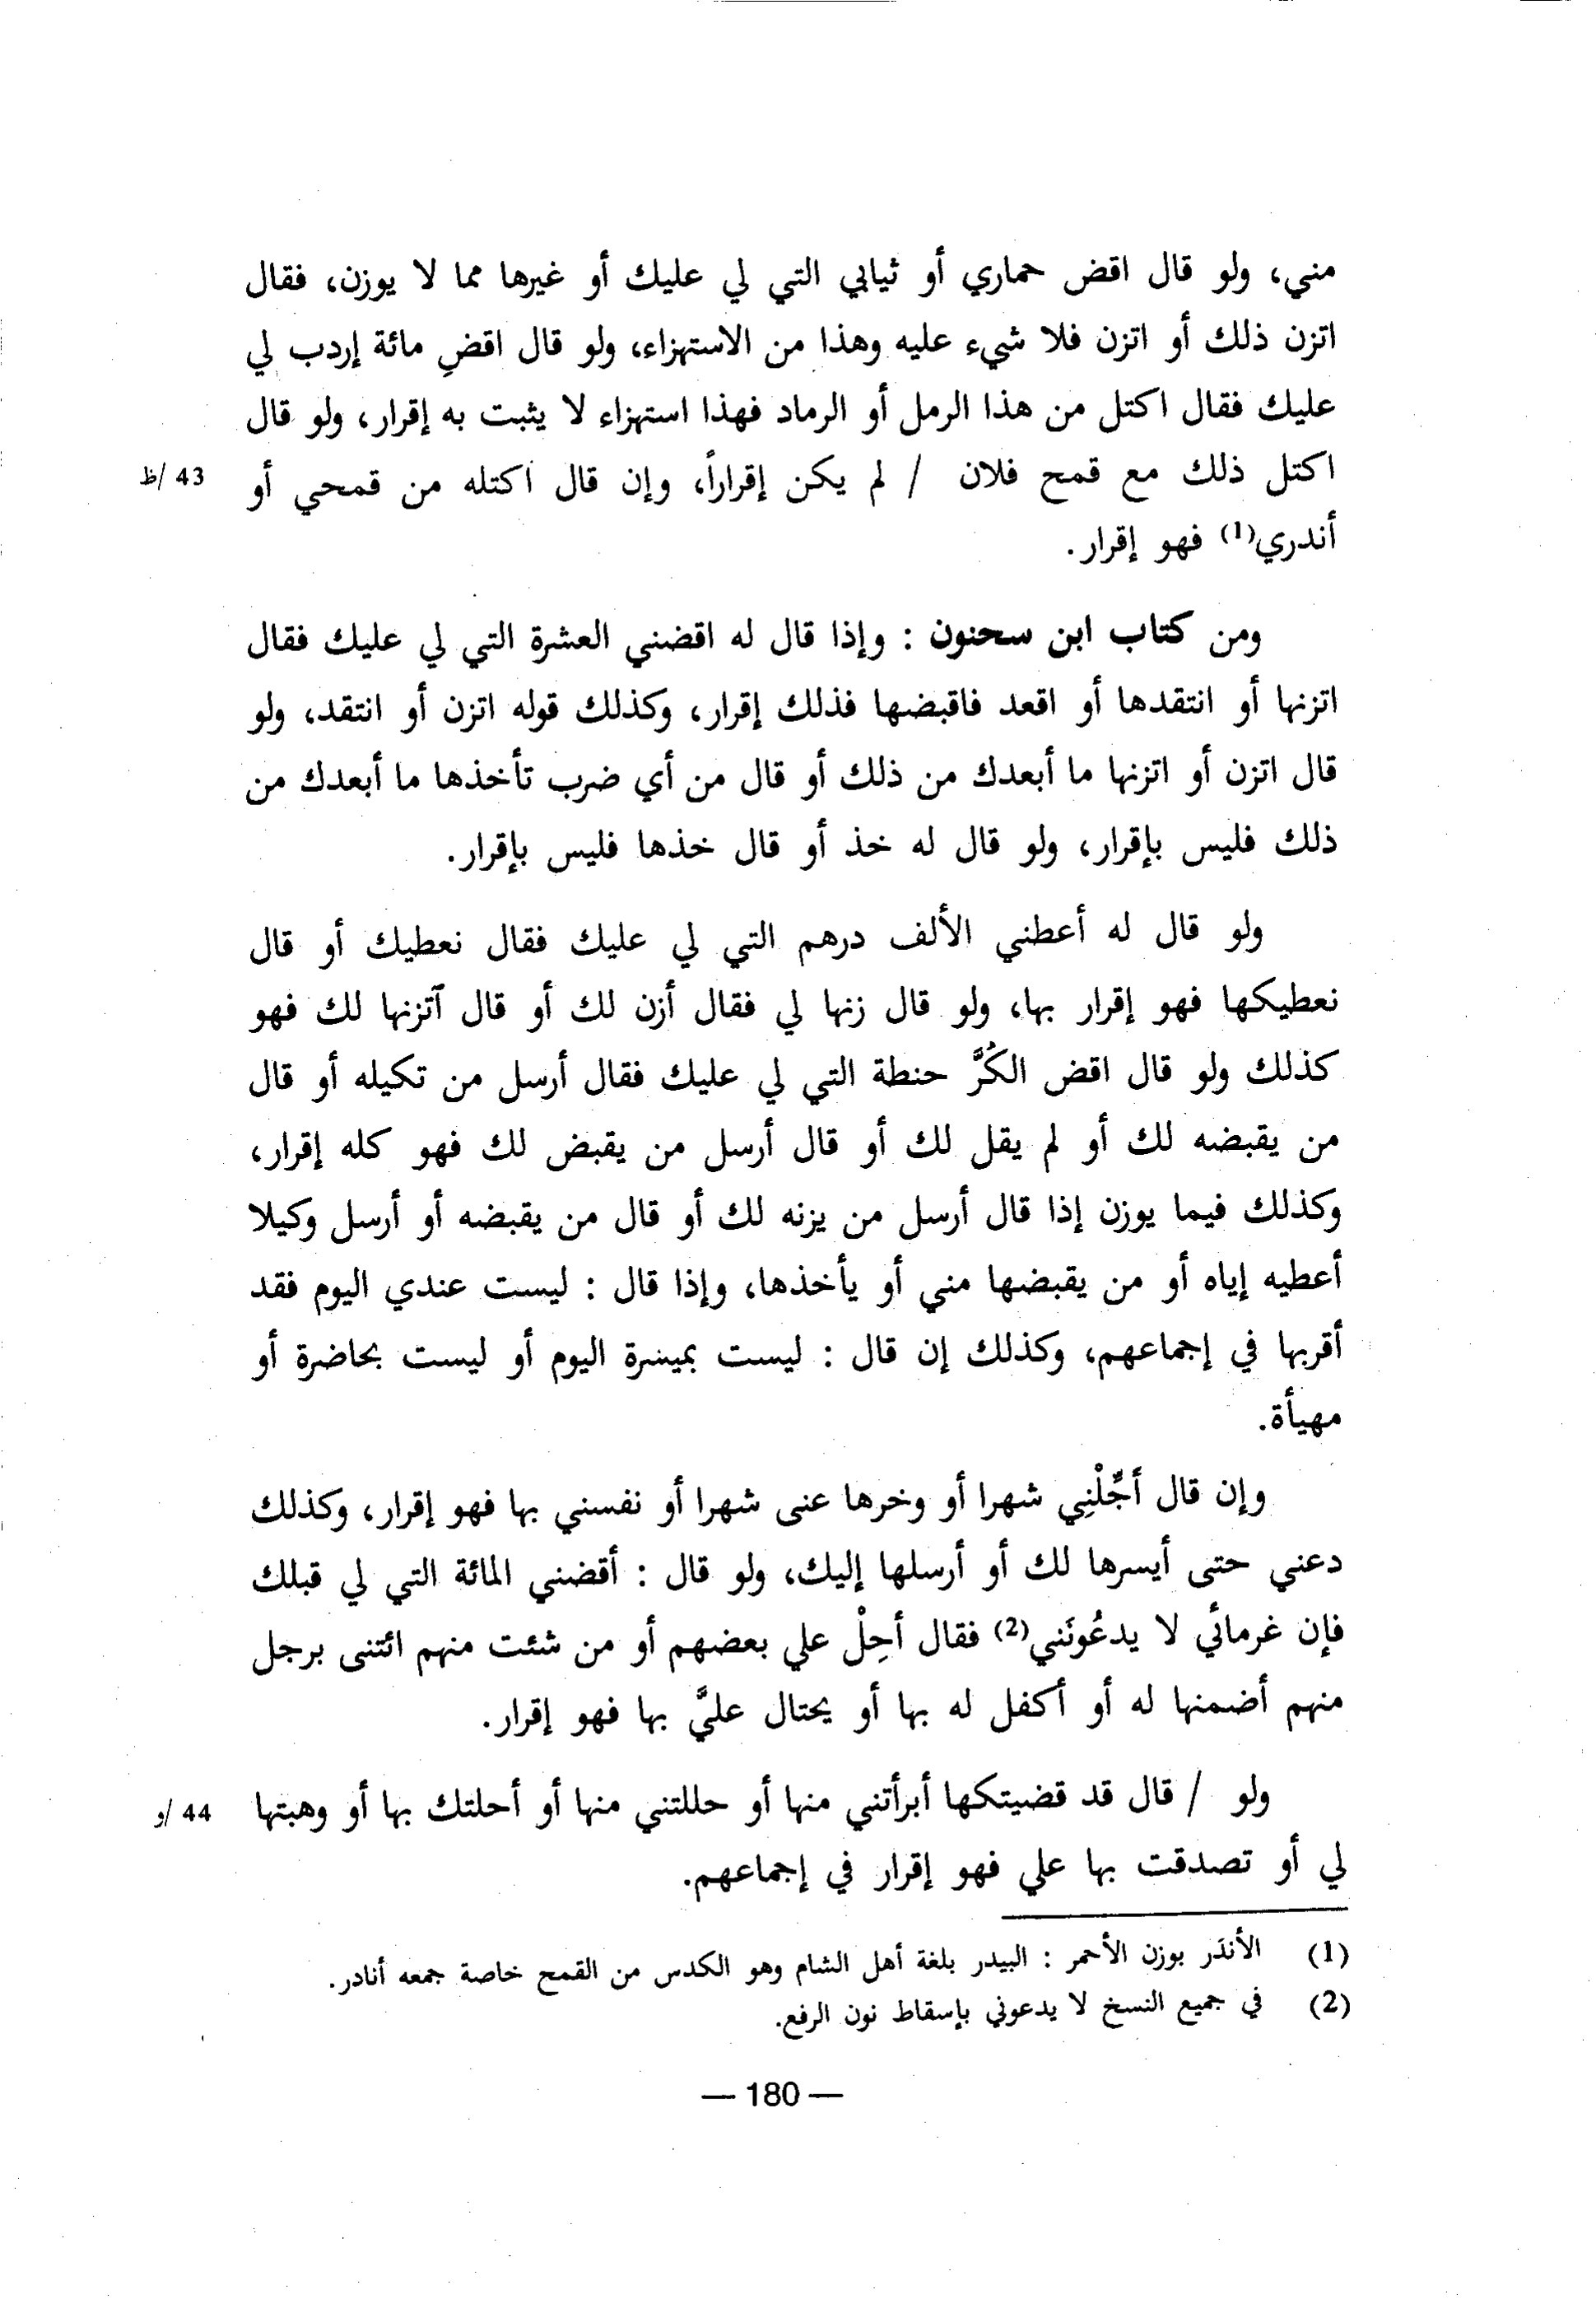 مني، ولو قال اقض حماري أو ثيابي التي لي عليك أو غيرها مما لا يوزن، فقال
اتزن ذلك أو اتزن فلا شيء عليه وهذا من الاستهزاء، ولو قال اقضِ مائة إردب لي
عليك فقال اكتل من هذا الرمل أو الرماد فهذا استهزاء لا يثبت به إقرار، ولو قال
اكتل ذلك مع قمح فلان / لم يكن إقراراً، وإن قال اكتله من قمحي أو
43 /ظ
أندري(1) فهو إقرار.
ومن كتاب ابن سحنون : وإذا قال له اقضني العشرة التي لي عليك فقال
اتزنها أو انتقدها أو اقعد فاقبضها فذلك إقرار، وكذلك قوله اتزن أو انتقد، ولو
قال اتزن أو اتزنها ما أبعدك من ذلك أو قال من أي ضرب تأخذها ما أبعدك من
ذلك فليس بإقرار، ولو قال له خذ أو قال خذها فليس بإقرار.
ولو قال له أعطني الألف درهم التي لي عليك فقال نعطيك أو قال
نعطيكها فهو إقرار بها، ولو قال زنها لي فقال أزن لك أو قال آتزنها لك فهو
كذلك ولو قال اقض الكُرَّ حنطة التي لي عليك فقال أرسل من تكيله أو قال
من يقبضه لك أو لم يقل لك أو قال أرسل من يقبض لك فهو كله إقرار،
وكذلك فيما يوزن إذا قال أرسل من يزنه لك أو قال من يقبضه أو أرسل وكيلا
أعطيه إياه أو من يقبضها مني أو يأخذها، وإذا قال : ليست عندي اليوم فقد
أقربها في إجماعهم، وكذلك إن قال : ليست بميسرة اليوم أو ليست بحاضرة أو
مهيأة.
وإن قال أَجِّلْنِي شهرا أو وخرها عنى شهرا أو نفسني بها فهو إقرار، وكذلك
دعني حتى أيسرها لك أو أرسلها إليك، ولو قال : أقضني المائة التي لي قبلك
فإن غرمائي لا يدعُونَني(2) فقال أحِلْ علي بعضهم أو من شئت منهم ائتنى برجل
منهم أضمنها له أو أكفل له بها أو يحتال عليَّ بها فهو إقرار.
ولو / قال قد قضيتكها أبرأتني منها أو حللتني منها أو أحلتك بها أو وهبتها
44 /و
لي أو تصدقت بها علي فهو إقرار في إجماعهم.
(1) الأنذَر بوزن الأحمر : البيدر بلغة أهل الشام وهو الكدس من القمح خاصة جمعه أنادر.
(2) في جميع النسخ لا يدعوني بإسقاط نون الرفع.
— 180 —